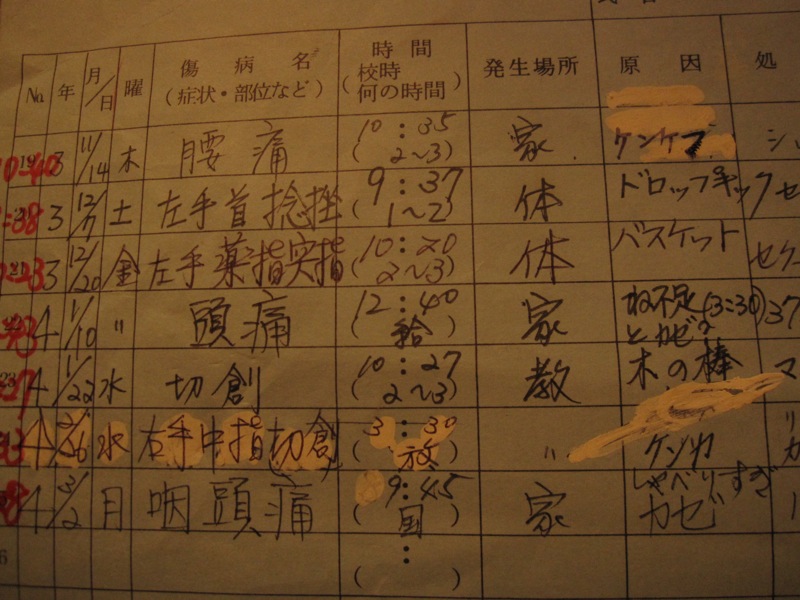 No. 年 月/日 曜 傷病名 (症状・部位など) 時間 (校時 何の時間) 発生場所 原因 処
19 3 11/14 木 腰痛 10:35 (2〜3) 家 ケンケツ
3 12/7 土 左手首捻挫 9:37 (1〜2) 体 ドロップキック セ
21 3 12/20 金 左手薬指突指 10:20 (2〜3) 体 バスケット セケ
4 1/10 〃 頭痛 12:40 (給) 家 ね不足(3:30) とカゼ? 37
23 4 1/22 水 切創 10:27 (2〜3) 教 木の棒 マ
4 2/26 水 右手中指切創 3:30 (放) 〃 ケンカ
4 3/2 日 咽頭痛 9:45 (国) 家 しゃべりすぎ カゼ
( : )